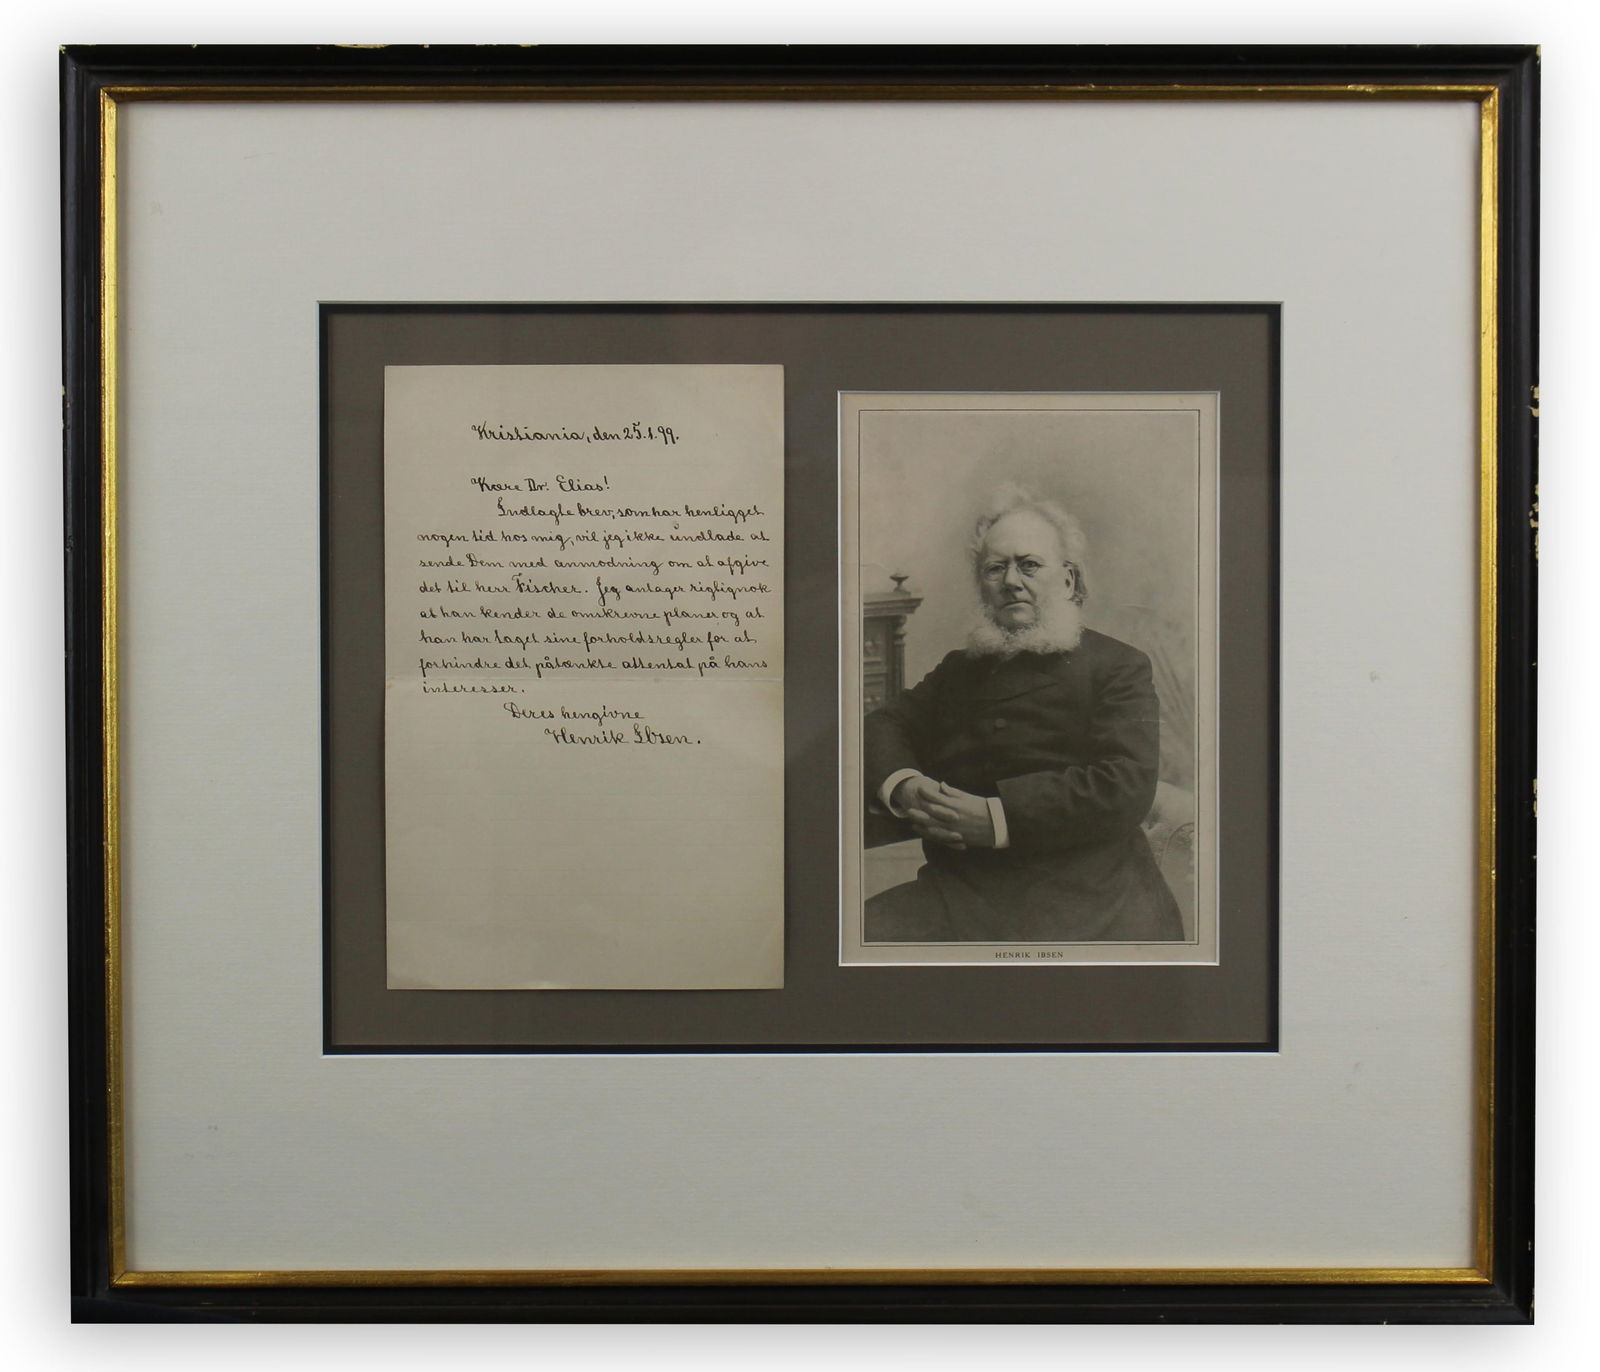 Kristiania, den 25.1.99.
Kære Dr. Elias!
Indlagte brev, som har henligget
nogen tid hos mig, vil jeg ikke undlade at
sende Dem med anmodning om at afgive
det til herr Fischer. Jeg antager rigtignok
at han kender de omskrevne planer og at
han har taget sine forholdsregler for at
forhindre det påtænkte attentat på hans
interesser.
Deres hengivne
Henrik Ibsen.
HENRIK IBSEN